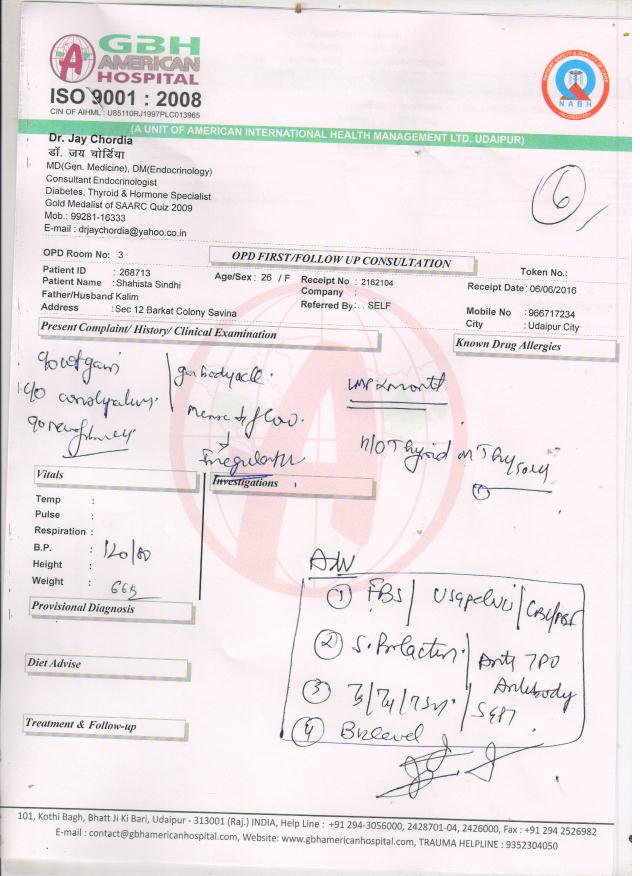 GBH
AMERICAN
HOSPITAL
ISO 9001 : 2008
CIN OF AIHML : U85110RJ1997PLC013965
NABH
(A UNIT OF AMERICAN INTERNATIONAL HEALTH MANAGEMENT LTD. UDAIPUR)
Dr. Jay Chordia
डॉ. जय चोर्डिया
MD(Gen. Medicine), DM(Endocrinology)
Consultant Endocrinologist
Diabetes, Thyroid & Hormone Specialist
Gold Medalist of SAARC Quiz 2009
Mob.: 99281-16333
E-mail : drjaychordia@yahoo.co.in
6
OPD Room No: 3
OPD FIRST/FOLLOW UP CONSULTATION
Token No.:
Patient ID : 268713
Age/Sex : 26 / F
Receipt No : 2162104
Receipt Date: 06/06/2016
Patient Name : Shahista Sindhi
Company :
Father/Husband Kalim
Referred By: . SELF
Mobile No : 966717234
Address : Sec 12 Barkat Colony Savina
City : Udaipur City
Present Complaint/ History/ Clinical Examination
Known Drug Allergies
LMP 2 month
Menses flow
Irregular
H/O Thyroid
Vitals
Investigations
Temp :
Pulse :
Respiration :
B.P. : 120/80
Height :
Weight :
Provisional Diagnosis
Diet Advise
Treatment & Follow-up
Adv
1 FBS / USG pelvis / CBC/PBF
2 S. Prolactin / Anti TPO Antibody
3 T3/T4/TSH / SGPT
4 B12 level
101, Kothi Bagh, Bhatt Ji Ki Bari, Udaipur - 313001 (Raj.) INDIA, Help Line : +91 294-3056000, 2428701-04, 2426000, Fax : +91 294 2526982
E-mail : contact@gbhamericanhospital.com, Website: www.gbhamericanhospital.com, TRAUMA HELPLINE : 9352304050